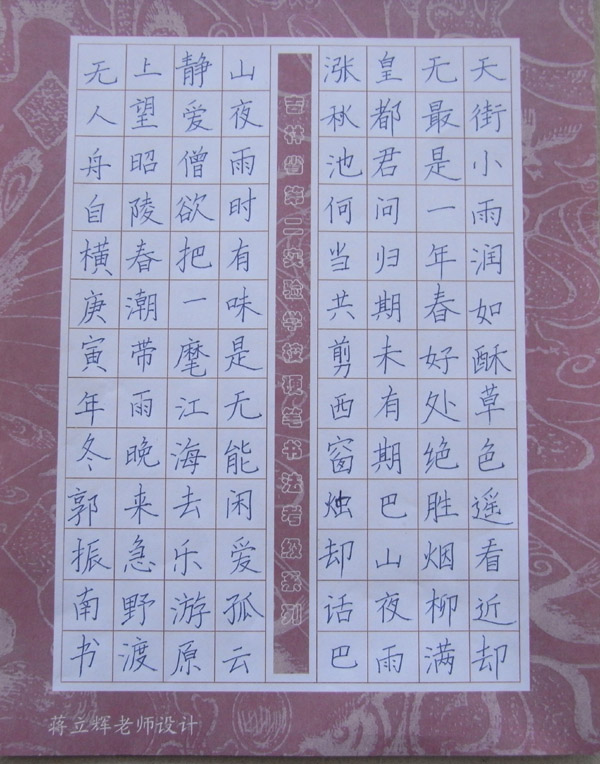 天街小雨润如酥草色遥看近却
无最是一年春好处绝胜烟柳满
皇都君问归期未有期巴山夜雨
涨秋池何当共剪西窗烛却话巴
吉林省第二实验学校硬笔书法考级系列
山夜雨时有味是无能闲爱孤云
静爱僧欲把一麾江海去乐游原
上望昭陵春潮带雨晚来急野渡
无人舟自横庚寅年冬郭振南书
蒋立辉老师设计